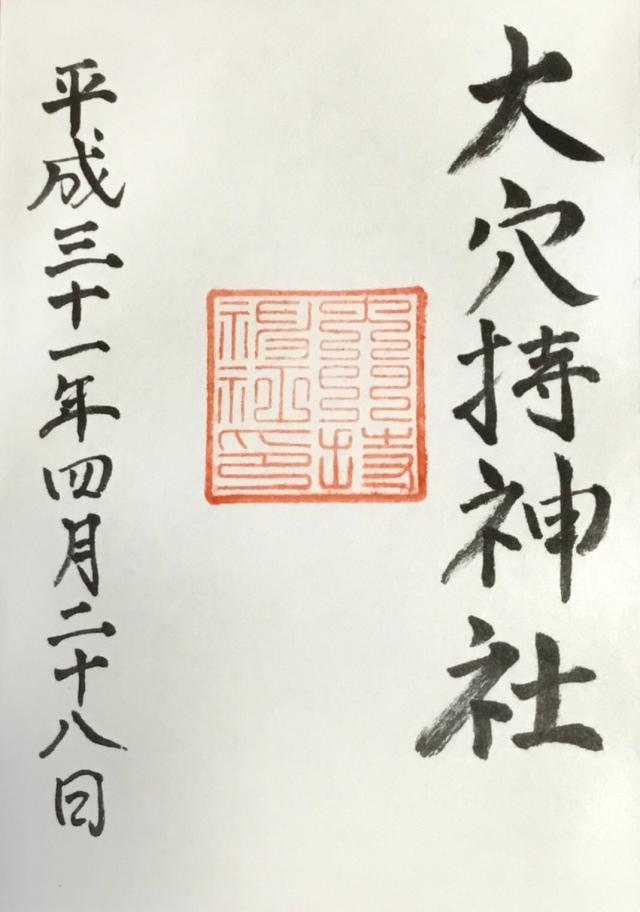 大穴持神社
平成三十一年四月二十八日